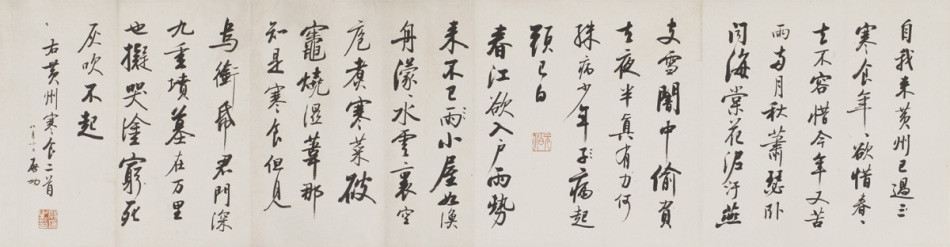 自我来黄州已過三
寒食年、欲惜春、
去不容惜今年又苦
雨兩月秋蕭瑟卧
闻海棠花泥汙燕
支雪闇中偷負
去夜半真有力何
殊病少年子病起
頭已白
春江欲入户雨勢
来不已雨小屋如漁
舟濛、水雲裏空
庖煮寒菜破
竈燒濕葦那
知是寒食但見
烏銜帋君門深
九重墳墓在万里
也擬哭塗窮死
灰吹不起
右黄州寒食二首
启功